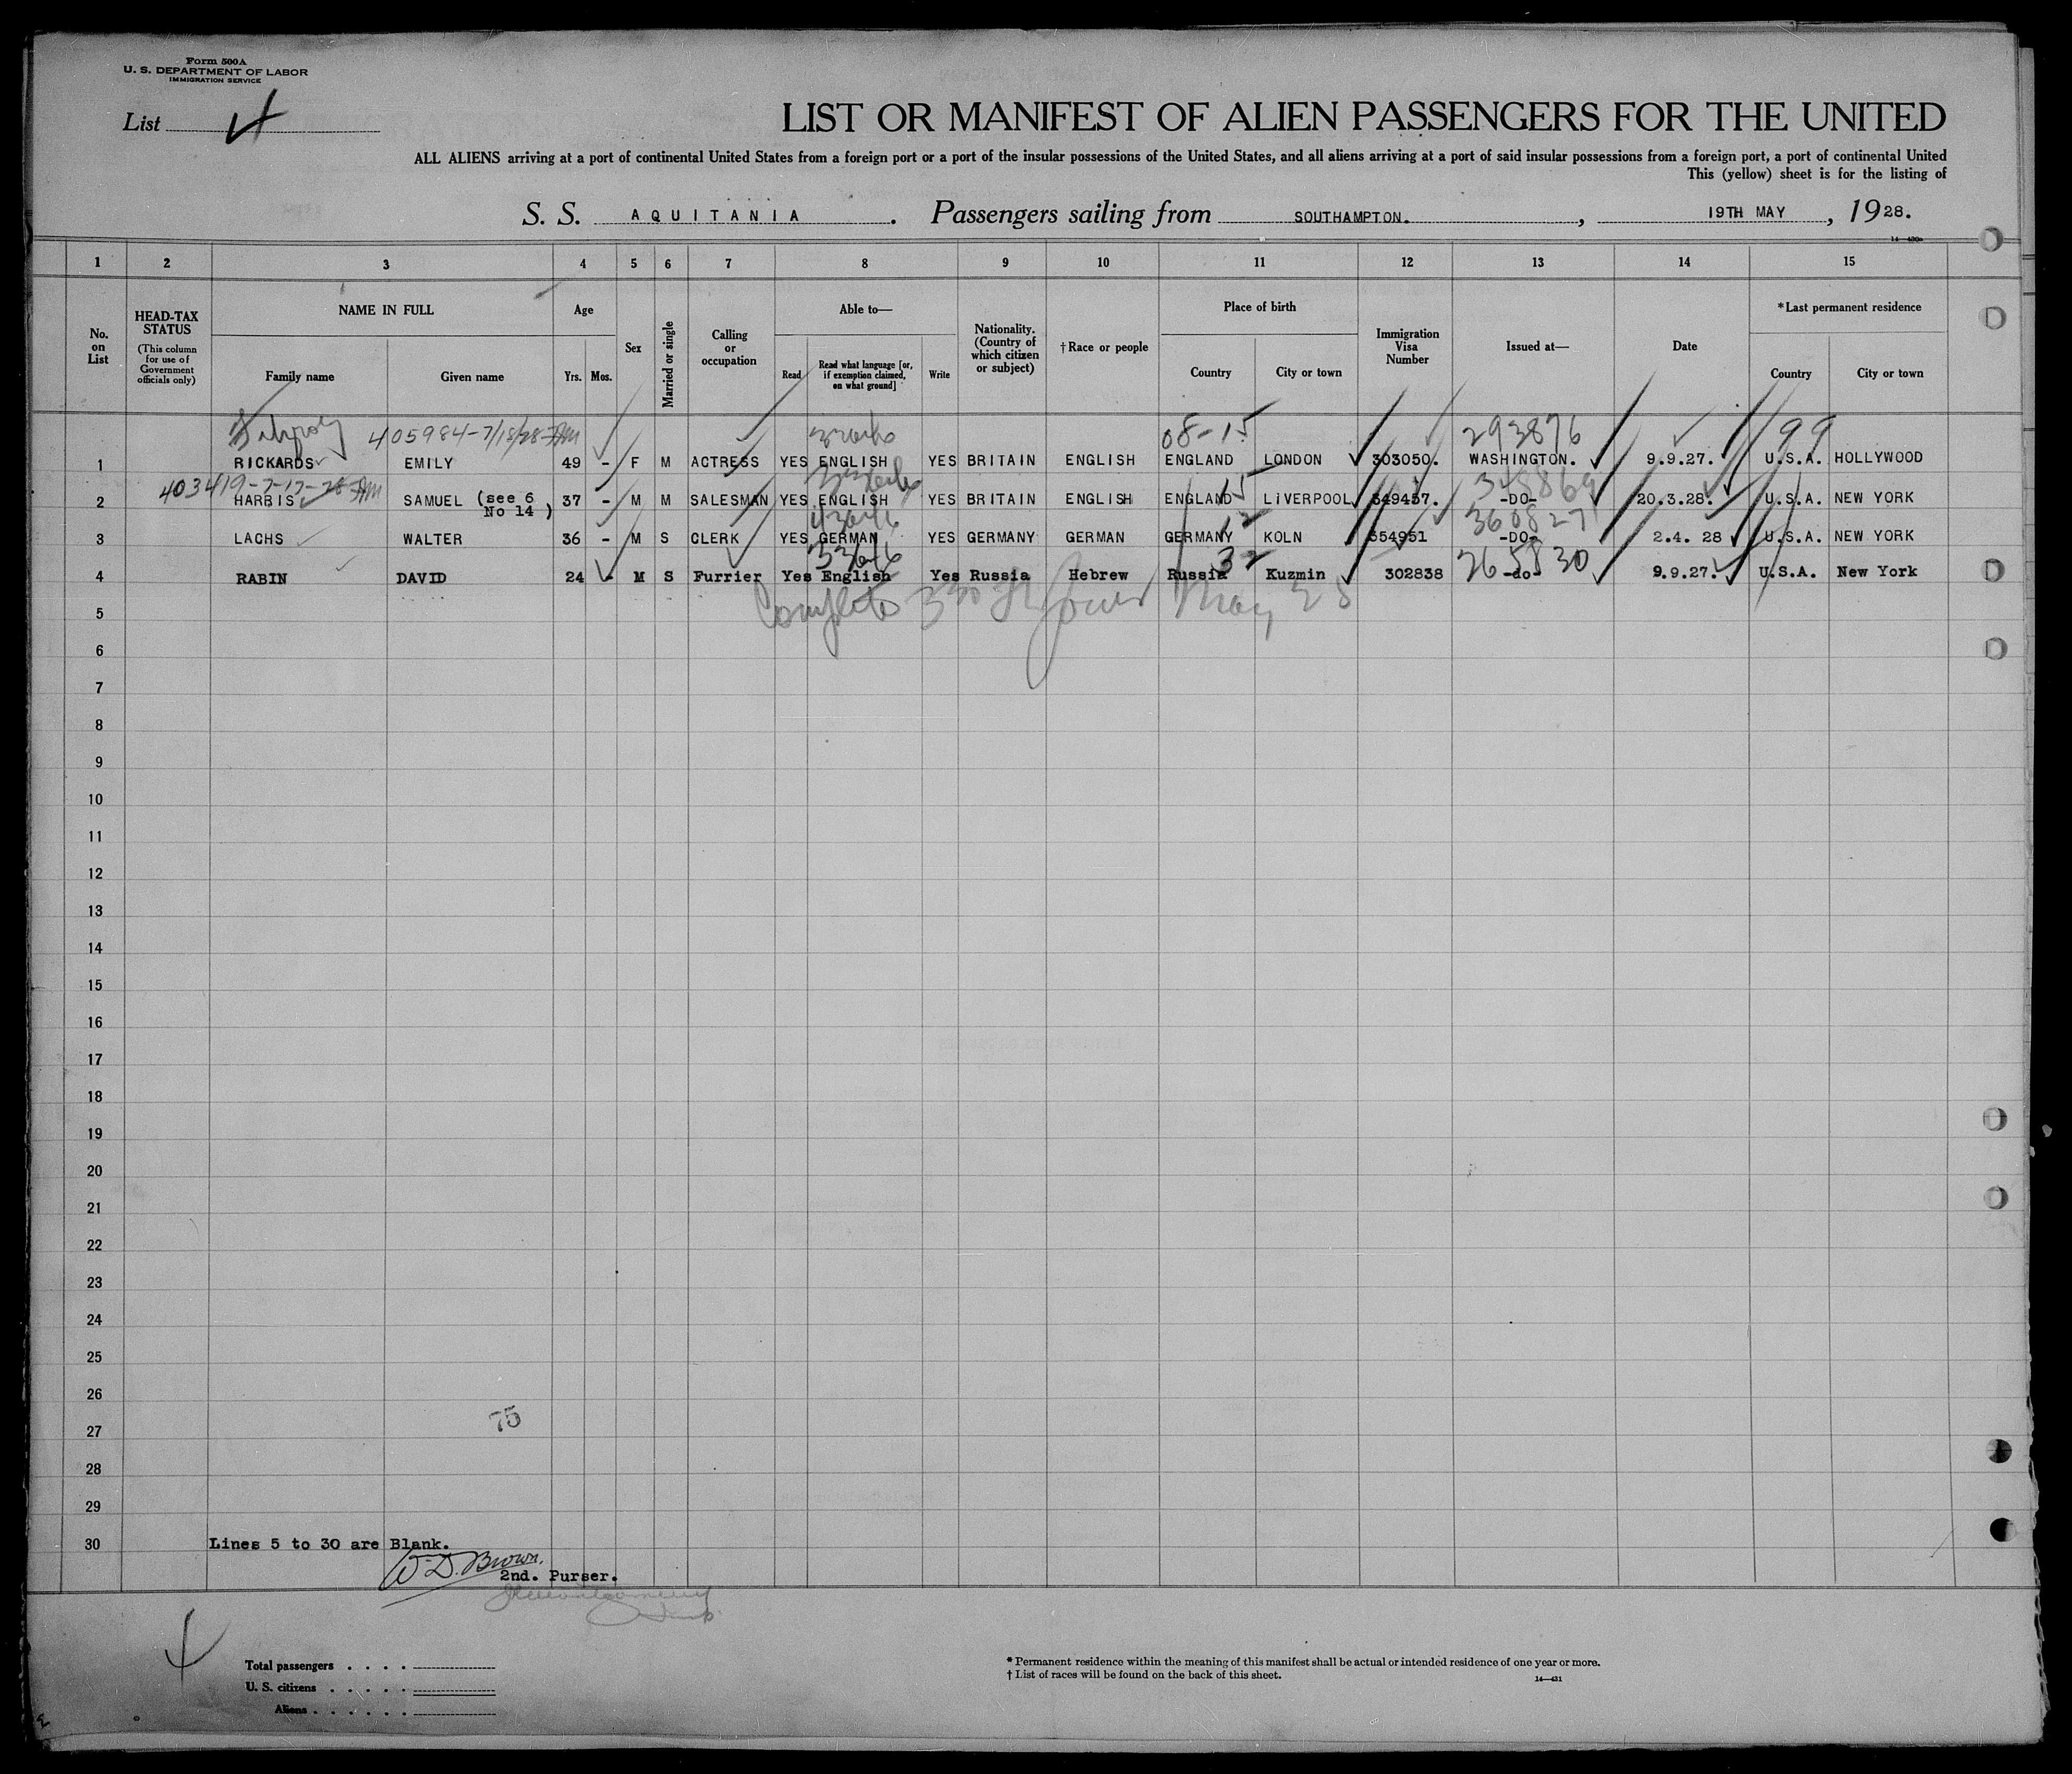 Form 500A
U. S. DEPARTMENT OF LABOR
IMMIGRATION SERVICE
List 4
LIST OR MANIFEST OF ALIEN PASSENGERS FOR THE UNITED
ALL ALIENS arriving at a port of continental United States from a foreign port or a port of the insular possessions of the United States, and all aliens arriving at a port of said insular possessions from a foreign port, a port of continental United
This (yellow) sheet is for the listing of
S. S. AQUITANIA. Passengers sailing from SOUTHAMPTON., 19TH MAY, 1928.
1 2 3 4 5 6 7 8 9 10 11 12 13 14 15
No. on List
HEAD-TAX STATUS (This column for use of Government officials only)
NAME IN FULL
Family name Given name
Age
Yrs. Mos.
Sex
Married or single
Calling or occupation
Able to—
Read Read what language [or, if exemption claimed, on what ground] Write
Nationality. (Country of which citizen or subject)
†Race or people
Place of birth
Country City or town
Immigration Visa Number
Issued at—
Date
*Last permanent residence
Country City or town
405984-7/18/28 08-15 293876 99
1 RICKARDS EMILY 49 - F M ACTRESS YES ENGLISH YES BRITAIN ENGLISH ENGLAND LONDON 303050. WASHINGTON. 9.9.27. U.S.A. HOLLYWOOD
403419-7-17-28 15 348869
2 HARRIS SAMUEL (see 6 No 14) 37 - M M SALESMAN YES ENGLISH YES BRITAIN ENGLISH ENGLAND LIVERPOOL 349457. -DO- 20.3.28. U.S.A. NEW YORK
12 360827
3 LACHS WALTER 36 - M S CLERK YES GERMAN YES GERMANY GERMAN GERMANY KOLN 354951 -DO- 2.4. 28 U.S.A. NEW YORK
32 265830
4 RABIN DAVID 24 - M S Furrier Yes English Yes Russia Hebrew Russia Kuzmin 302838 -do- 9.9.27. U.S.A. New York
Complete May 28
5
6
7
8
9
10
11
12
13
14
15
16
17
18
19
20
21
22
23
24
25
26
75
27
28
29
30 Lines 5 to 30 are Blank.
W. D. Brown.
2nd. Purser.
Total passengers . . . .
U. S. citizens . . . . .
Aliens . . . . . .
* Permanent residence within the meaning of this manifest shall be actual or intended residence of one year or more.
† List of races will be found on the back of this sheet.
14—431